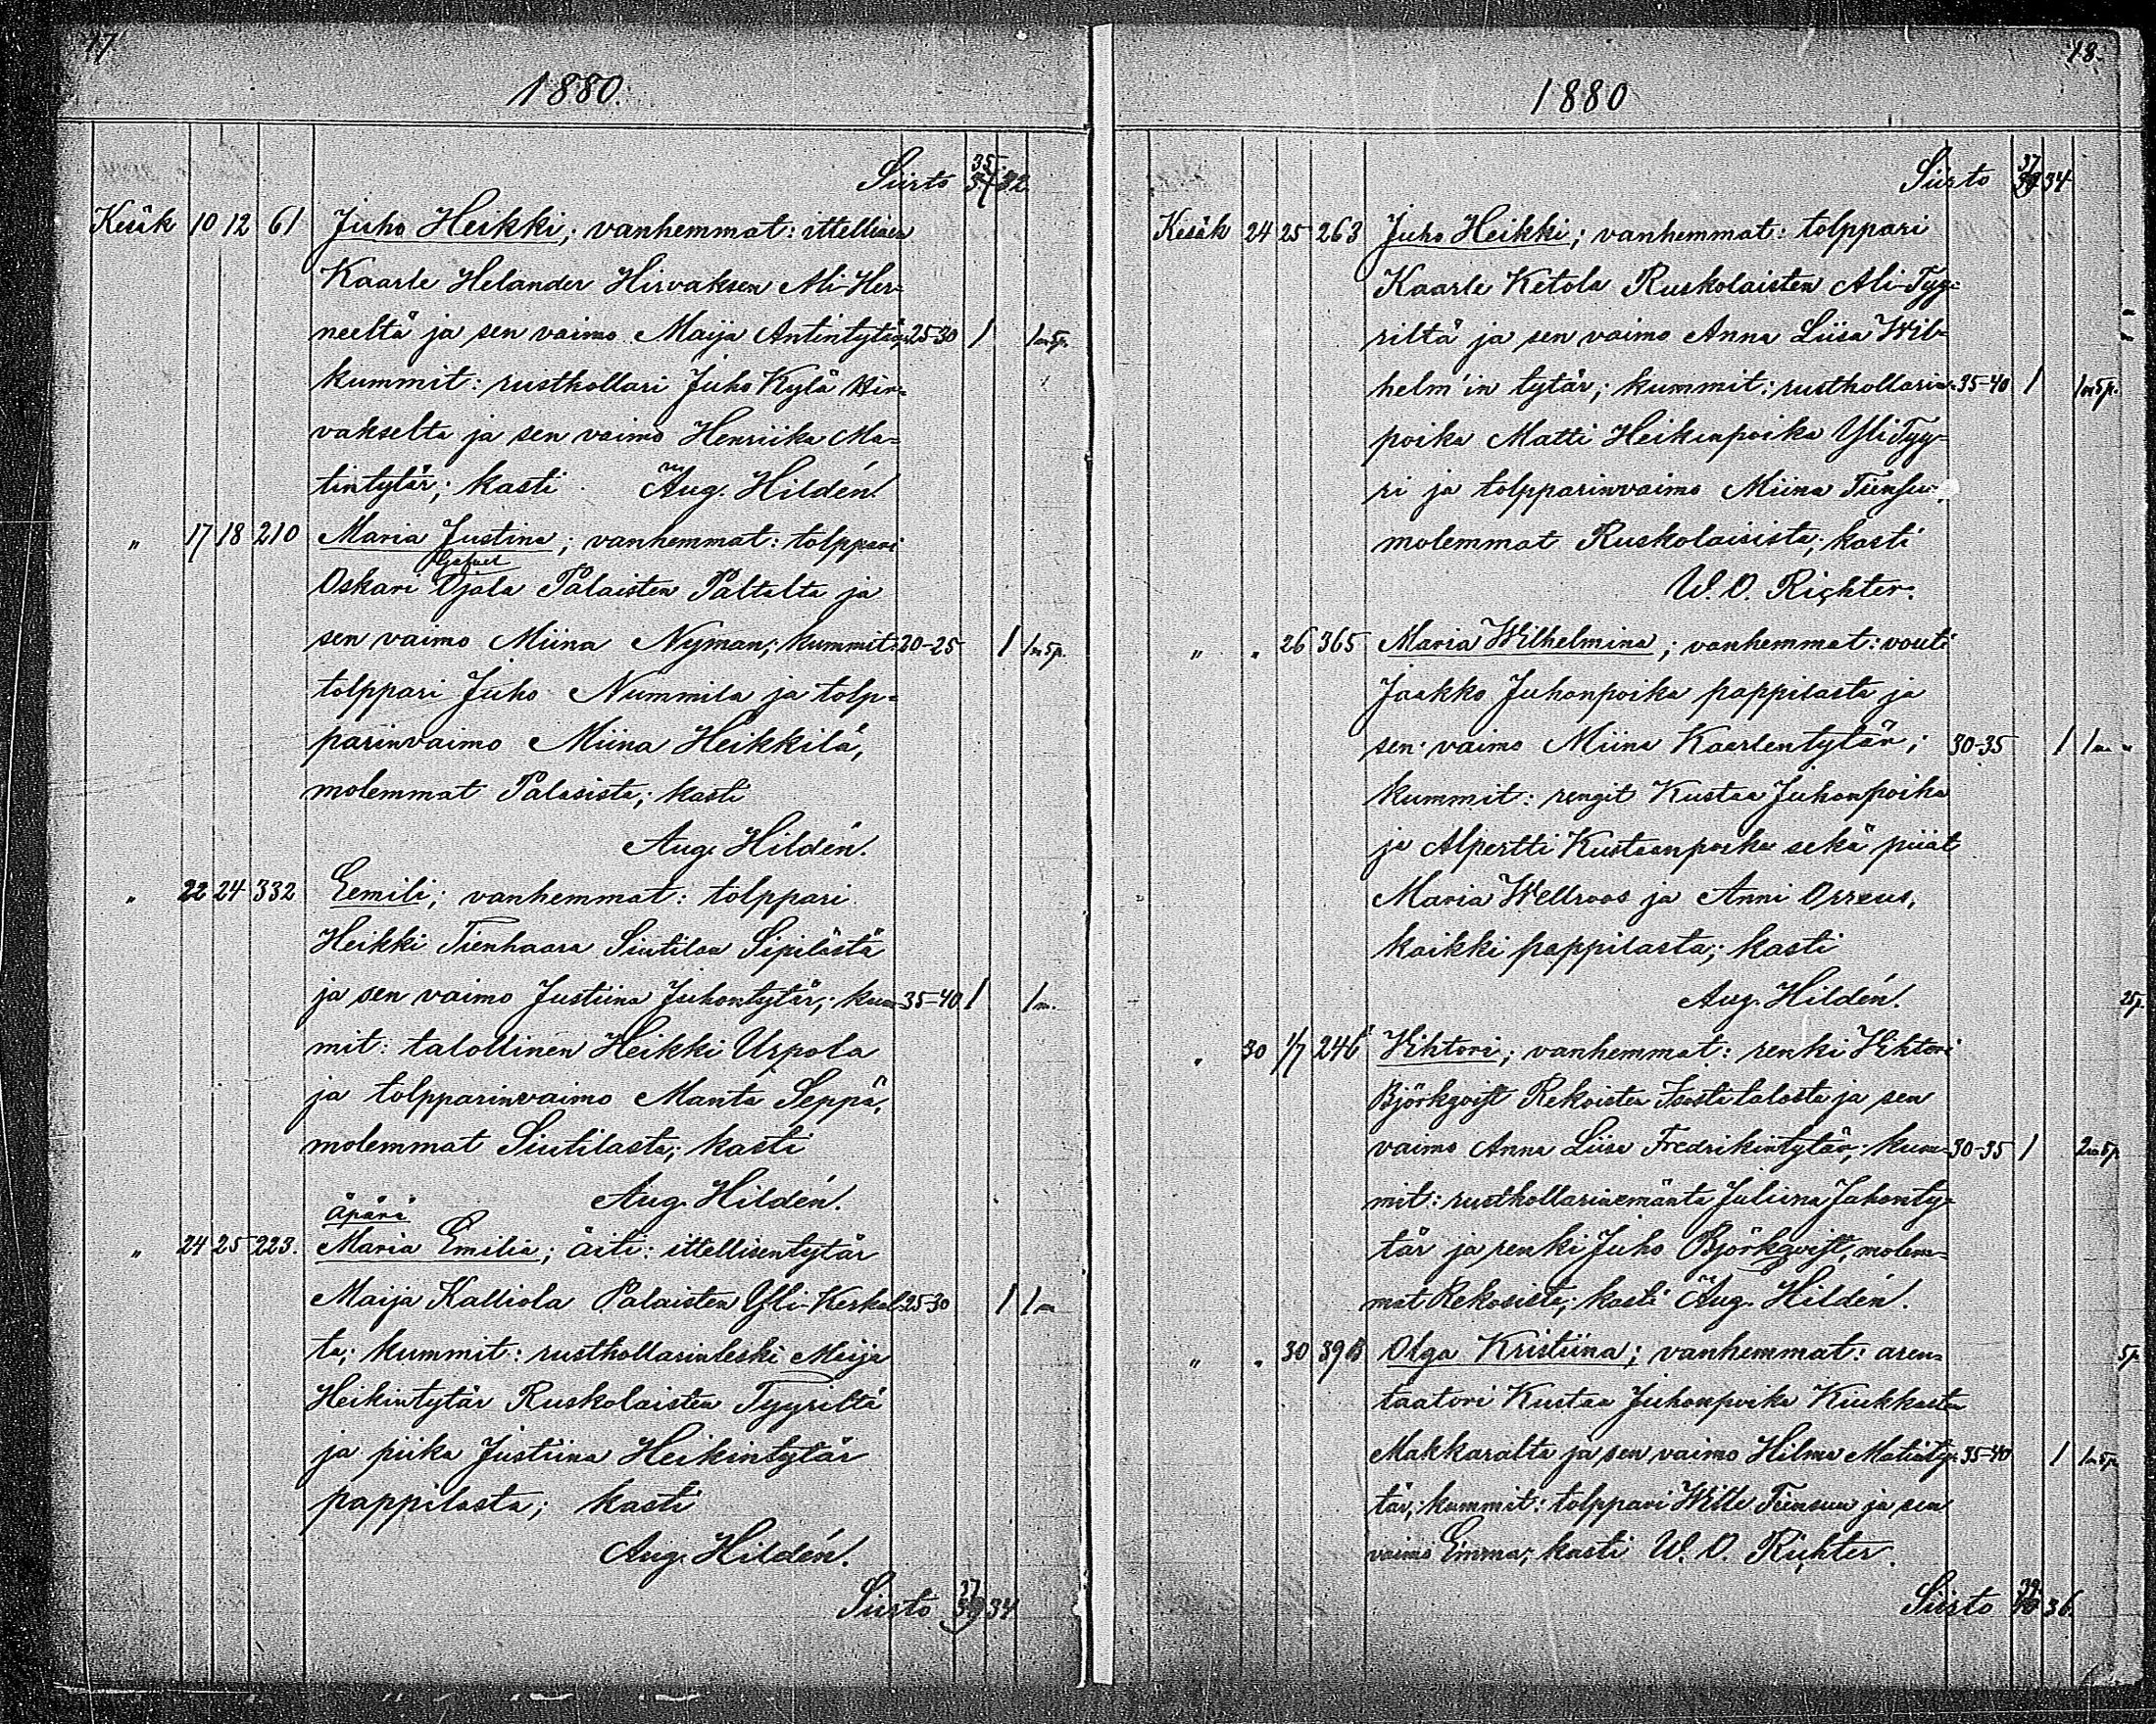 17
1880.
Siirto 35 32
Kesäk 10 12 61 Juho Heikki; vanhemmat: ittellisen
Kaarle Helander Hirvaksen Ali-Her=
neeltä ja sen vaimo Maija Antintytär; 25-30 1 1m5p.
kummit: rusthollari Juho Kylä Hir=
vakselta ja sen vaimo Henriika Ma=
tintytär; kasti Aug. Hildén.
" 17 18 210 Maria Justina; vanhemmat: tolppari
Oskari Ojala Palaisten Paltalta ja
sen vaimo Miina Nyman; kummit: 20-25 1 1m5p.
tolppari Juho Nummila ja tolp=
parinvaimo Miina Heikkilä,
molemmat Palasista; kasti
Aug. Hildén.
" 22 24 332 Eemili; vanhemmat: tolppari
Heikki Tienhaara Siutilan Sipilästä
ja sen vaimo Justiina Juhontytär; kum= 35-40 1 1m.
mit: talollinen Heikki Urpola
ja tolpparinvaimo Manta Seppä,
molemmat Siutilasta; kasti
Aug. Hildén.
äpärä
" 24 25 223. Maria Emilia; äiti: ittellisentytär
Maija Kalliola Palaisten Yli-Kerkol= 25-30 1 1m
ta; kummit: rusthollarinleski Maija
Heikintytär Ruskolaisten Tyyriltä
ja piika Justiina Heikintytär
pappilasta; kasti
Aug. Hildén.
Siirto 37 34
18.
1880
Siirto 37 34
Kesäk 24 25 263 Juho Heikki; vanhemmat: tolppari
Kaarle Ketola Ruskolaisten Ali-Tyy=
riltä ja sen vaimo Anna Liisa Wil=
helm'in tytär; kummit: rusthollarin= 35-40 1 1m5p.
poika Matti Heikinpoika Yli Tyy=
ri ja tolpparinvaimo Miina Tiensuu,
molemmat Ruskolaisista; kasti
W. O. Richter.
" " 26 365 Maria Wilhelmina; vanhemmat: vouti
Jaakko Juhonpoika pappilasta ja
sen vaimo Miina Kaarlentytär; 30-35 1 1m
kummit: rengit Kustaa Juhonpoika
ja Alpertti Kustaanpoika sekä piiat
Maria Wellroos ja Anni Orreus,
kaikki pappilasta; kasti
Aug. Hildén. 25p.
" 30 1/7 246 Wihtori; vanhemmat: renki Wihtori
Björkqvist Rekoisten Isosta talosta ja sen
vaimo Anna Liisa Fredrikintytär; kum= 30-35 1 2m5p.
mit: rusthollarinemäntä Juliina Juhonty=
tär ja renki Juho Björkqvist, molem=
mat Rekosista; kasti Aug. Hildén.
" " 30 393 Olga Kristiina; vanhemmat: aren= 5p.
taatori Kustaa Juhonpoika Kiukkasten
Makkaralta ja sen vaimo Hilma Matinty= 35-40 1 1m5p
tär; kummit: tolppari Wille Tiensuu ja sen
vaimo Emma; kasti W. O. Richter.
Siirto 39 36.